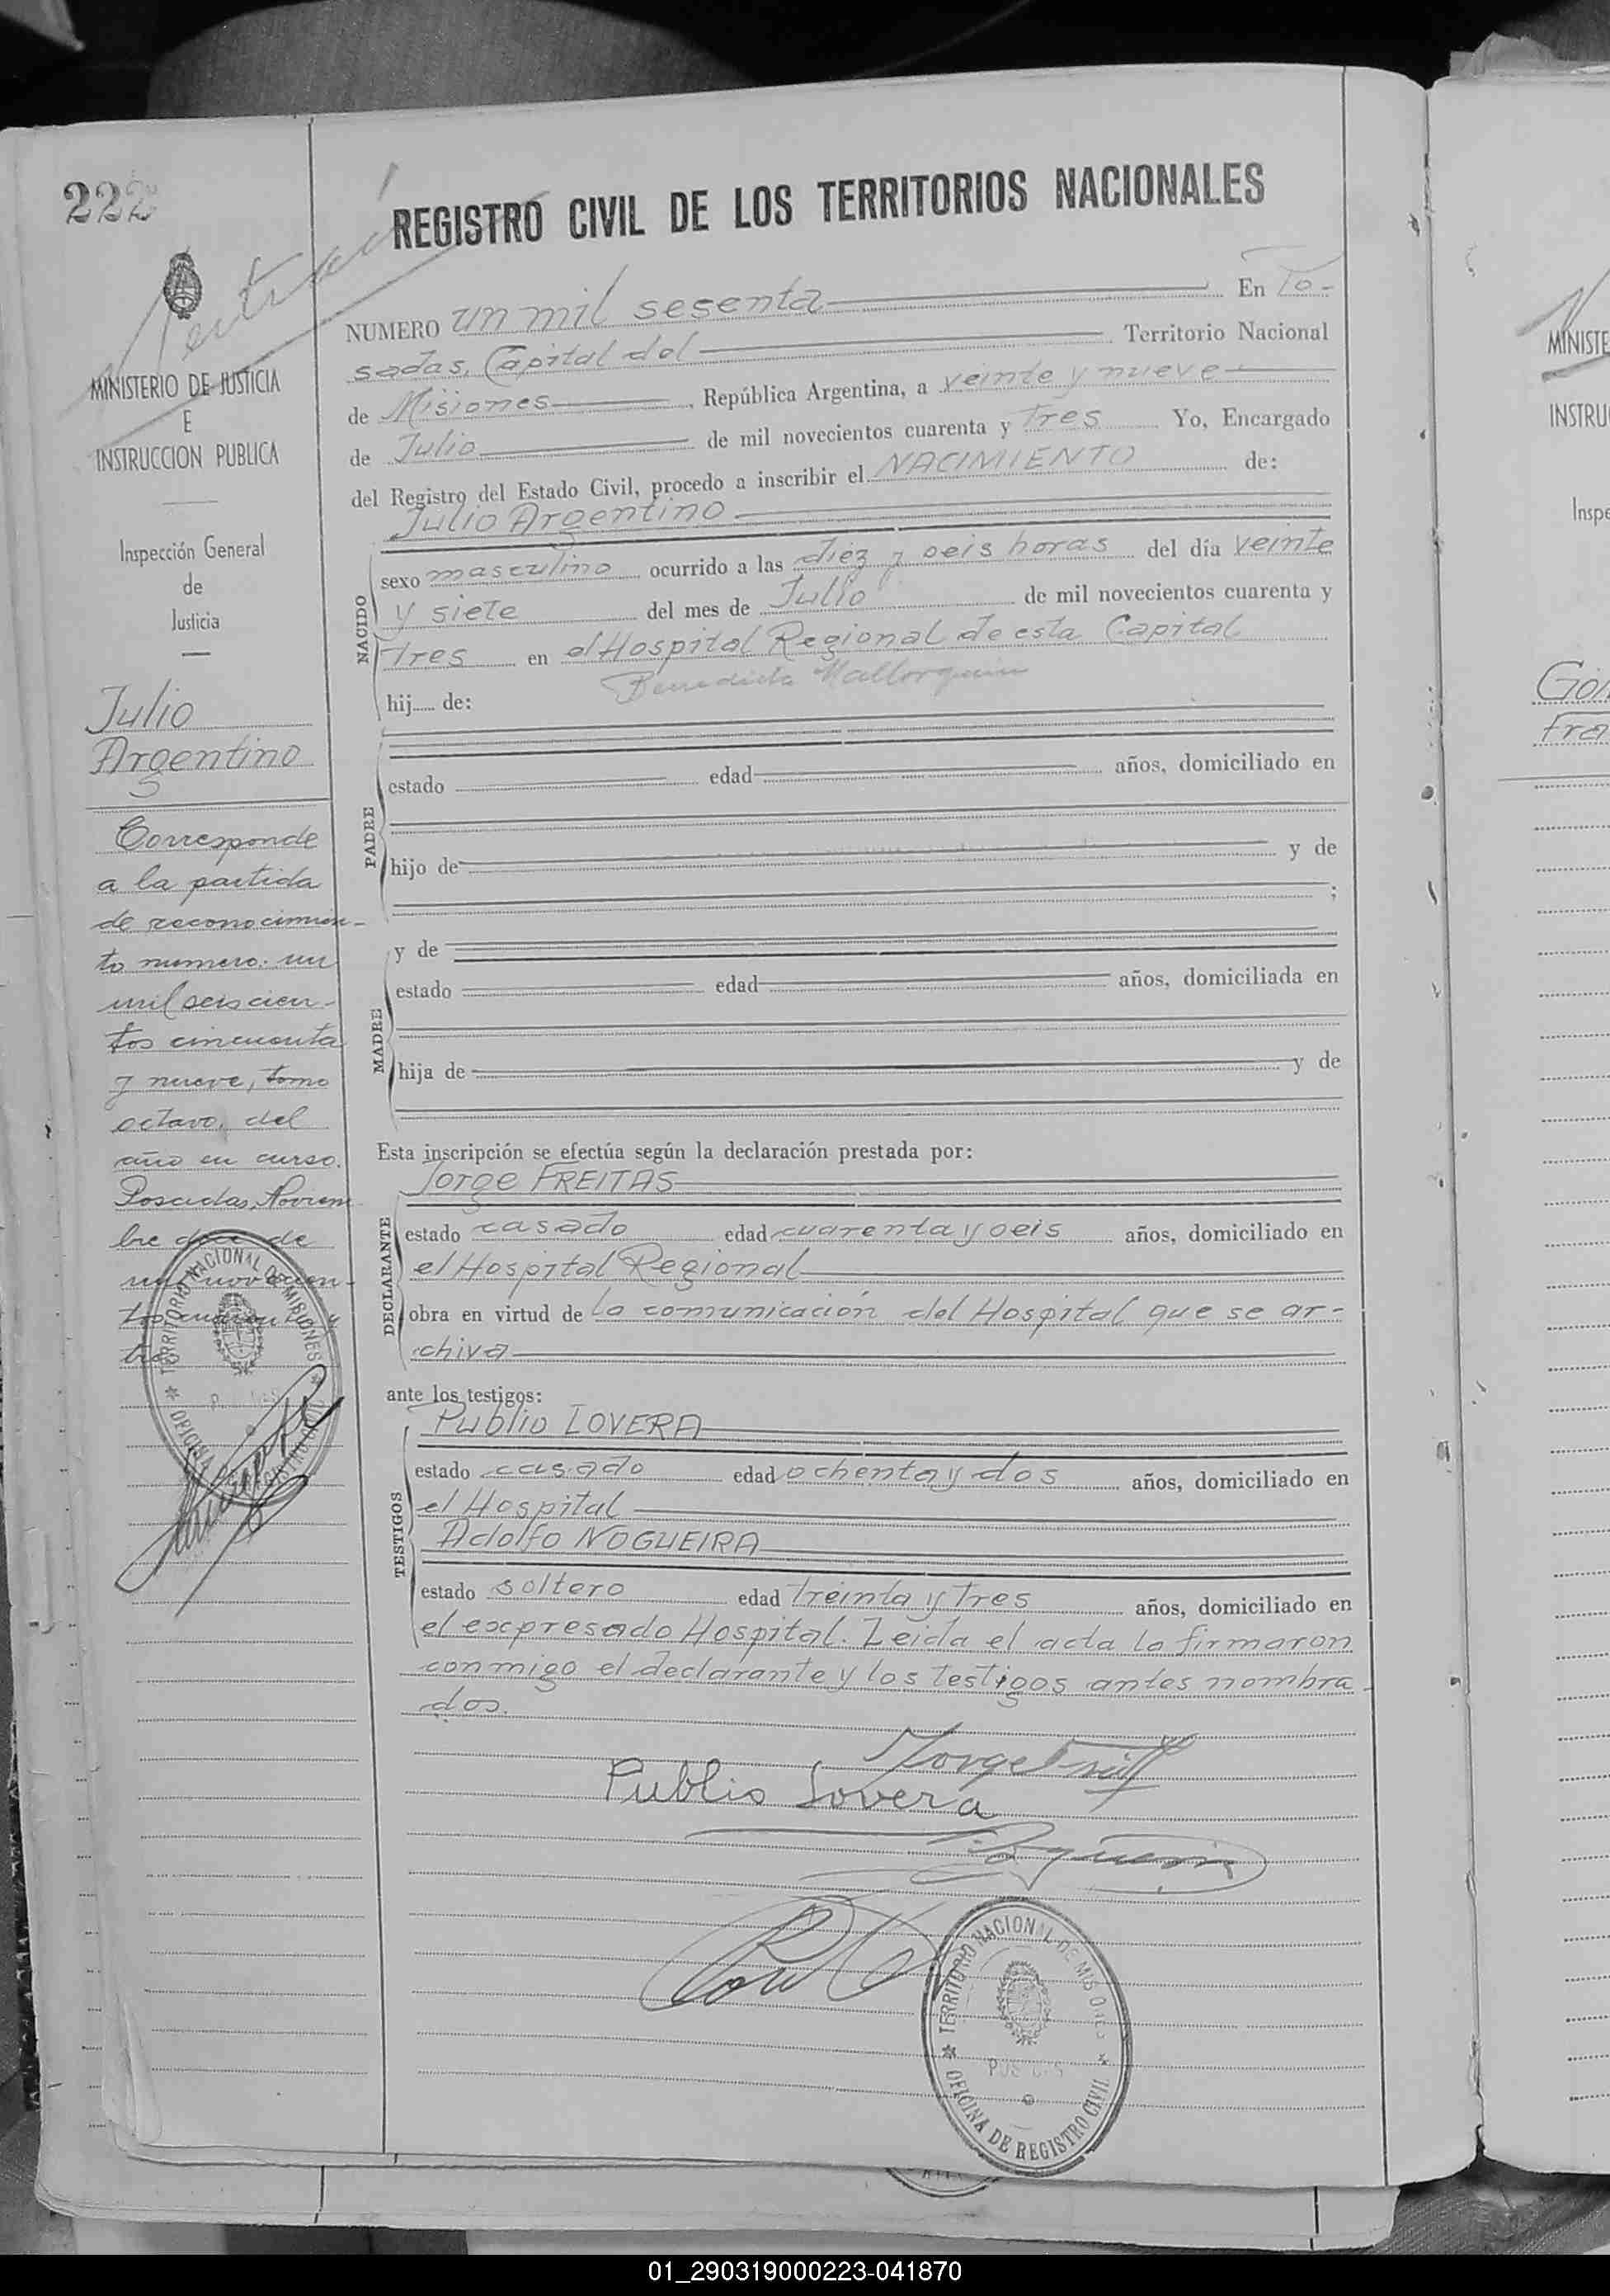 222
REGISTRO CIVIL DE LOS TERRITORIOS NACIONALES
MINISTERIO DE JUSTICIA
E
INSTRUCCION PUBLICA
Inspección General
de
Justicia
Julio
Argentino
Corresponde
a la partida
de reconocimien-
to numero: un
mil seis cien-
tos cincuenta
y nueve, tomo
octavo, del
año en curso.
Posadas, Noviem
bre doce de
mil novecien-
tos cuarenta y
tres
TERRITORIO NACIONAL DE MISIONES
OFICINA DE REGISTRO CIVIL
NUMERO un mil sesenta En Po-
sadas, Capital del Territorio Nacional
de Misiones, República Argentina, a veinte y nueve
de Julio de mil novecientos cuarenta y Tres Yo, Encargado
del Registro del Estado Civil, procedo a inscribir el NACIMIENTO de:
Julio Argentino
NACIDO
sexo masculino ocurrido a las diez y seis horas del día veinte
y siete del mes de Julio de mil novecientos cuarenta y
Tres en el Hospital Regional de esta Capital
Benedicta Mallorquin
hij..... de:
PADRE
estado edad años, domiciliado en
hijo de y de
;
MADRE
y de
estado edad años, domiciliada en
hija de y de
Esta inscripción se efectúa según la declaración prestada por:
Jorge FREITAS
DECLARANTE
estado casado edad cuarenta y seis años, domiciliado en
el Hospital Regional
obra en virtud de la comunicación del Hospital que se ar-
chiva
ante los testigos:
Publio LOVERA
TESTIGOS
estado casado edad ochenta y dos años, domiciliado en
el Hospital
Adolfo NOGUEIRA
estado soltero edad Treinta y Tres años, domiciliado en
el expresado Hospital. Leida el acta la firmaron
conmigo el declarante y los testigos antes nombra-
dos.
Publio Lovera
TERRITORIO NACIONAL DE MISIONES
POSADAS
OFICINA DE REGISTRO CIVIL
MINISTE
INSTRU
Inspe
01_290319000223-041870